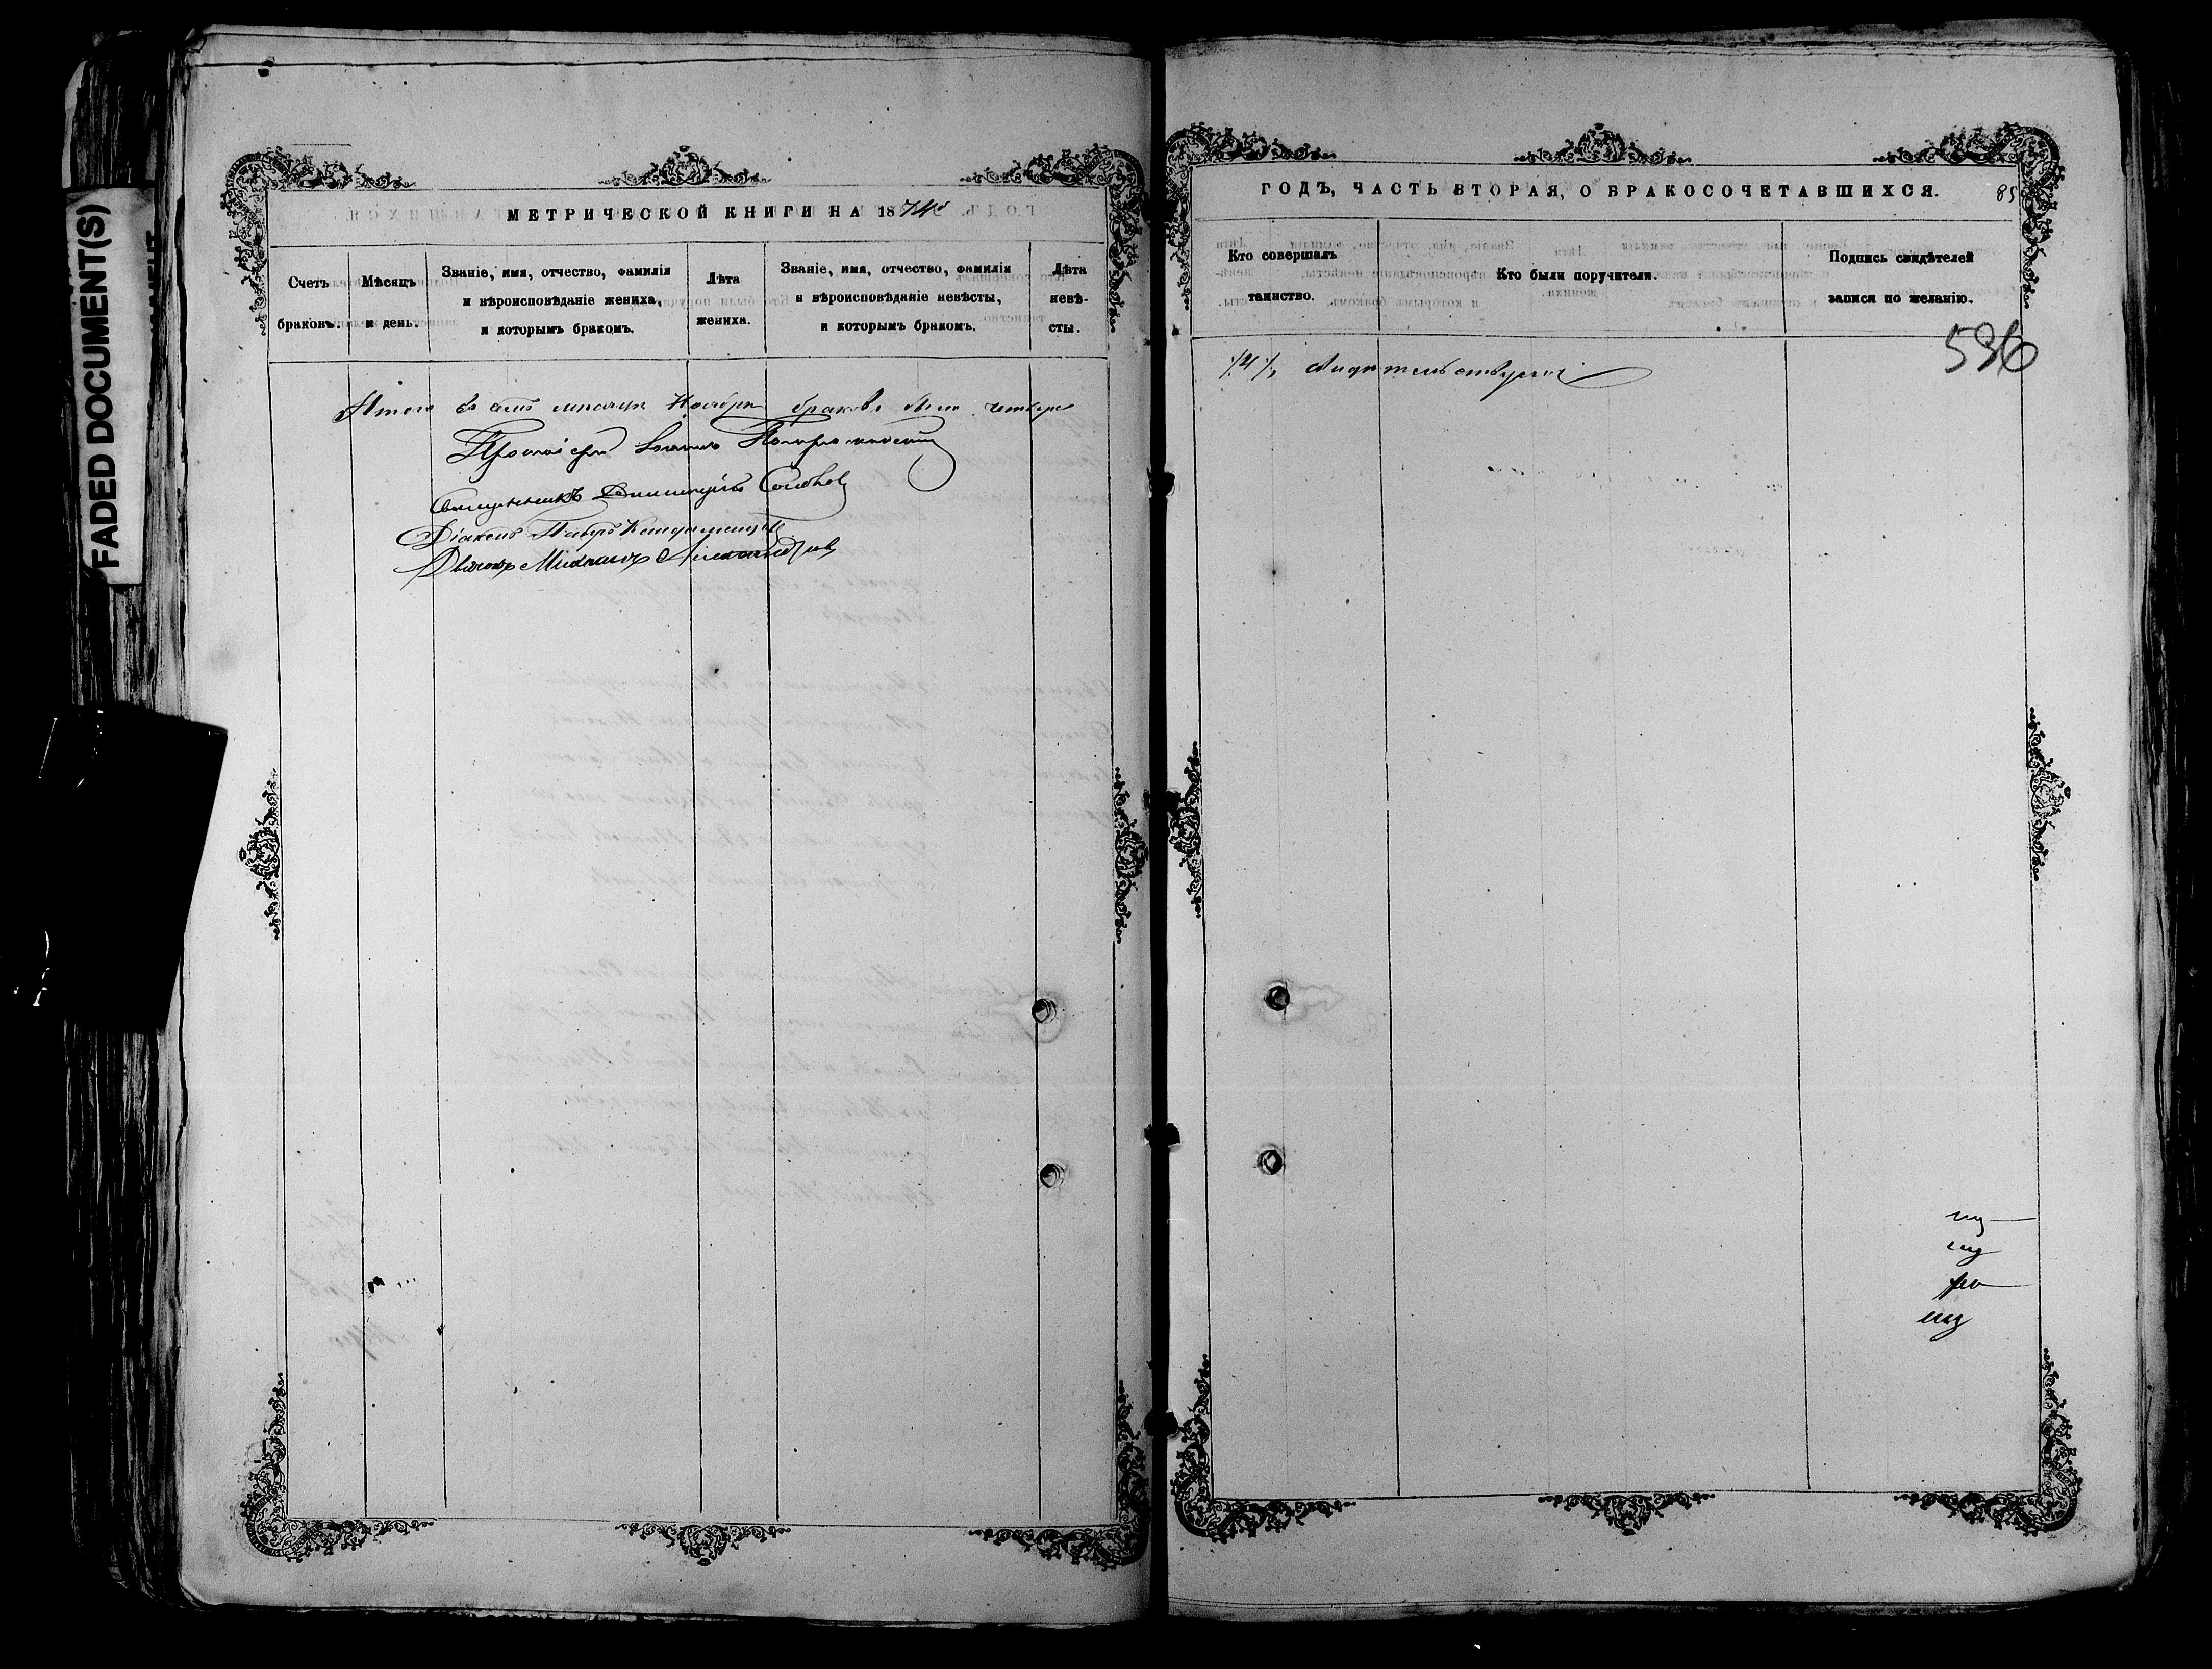 FADED DOCUMENT(S)
МЕТРИЧЕСКОЙ КНИГИ НА 1874й
Счетъ браковъ.
Мѣсяцъ и день.
Званіе, имя, отчество, фамилія и вѣроисповѣданіе жениха, и которымъ бракомъ.
Лѣта жениха.
Званіе, имя, отчество, фамилія и вѣроисповѣданіе невѣсты, и которымъ бракомъ.
Лѣта невѣ-сты.
Итого въ семъ мѣсяцѣ Ноябрѣ браковъ было четыре
Протоіерей Іоаннъ
Священникъ Димитрій Соловьев
Діаконъ Петръ
Дьячокъ Михаилъ Александров
ГОДЪ, ЧАСТЬ ВТОРАЯ, О БРАКОСОЧЕТАВШИХСЯ.
85
Кто совершалъ таинство.
Кто были поручители.
Подпись свидѣтелей записи по желанію.
596
/:4:/, свидѣтельствуемъ